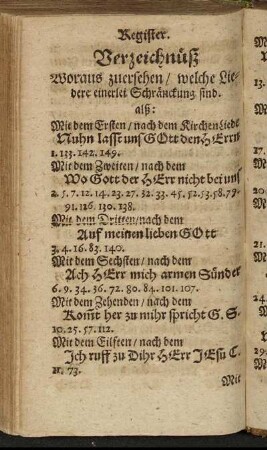 Register.
Verzeichnüß
Woraus zuersehen / welche Lie-
dere einerlei Schränckung sind.
alß:
Mit dem Ersten / nach dem Kirchen Liede
Nuhn lasst uns GOtt den HErrn
1. 133. 142. 149.
Mit dem Zweiten / nach dem
Wo Gott der HErr nicht bei uns
2. 5. 7. 12. 14. 23. 27. 32. 33. 45. 52. 53. 58. 79.
91. 126. 130. 138.
Mit dem Dritten / nach dem
Auf meinen lieben GOtt
3. 4. 16. 83. 140.
Mit dem Sechsten / nach dem
Ach HErr mich armen Sünder
6. 9. 34. 36. 72. 80. 84. 101. 107.
Mit dem Zehenden / nach dem
Kom̃t her zu mihr spricht G. S.
10. 25. 57. 112.
Mit dem Eilften / nach dem
Ich ruff zu Dihr HErr JEsu C.
11. 73.
Mit